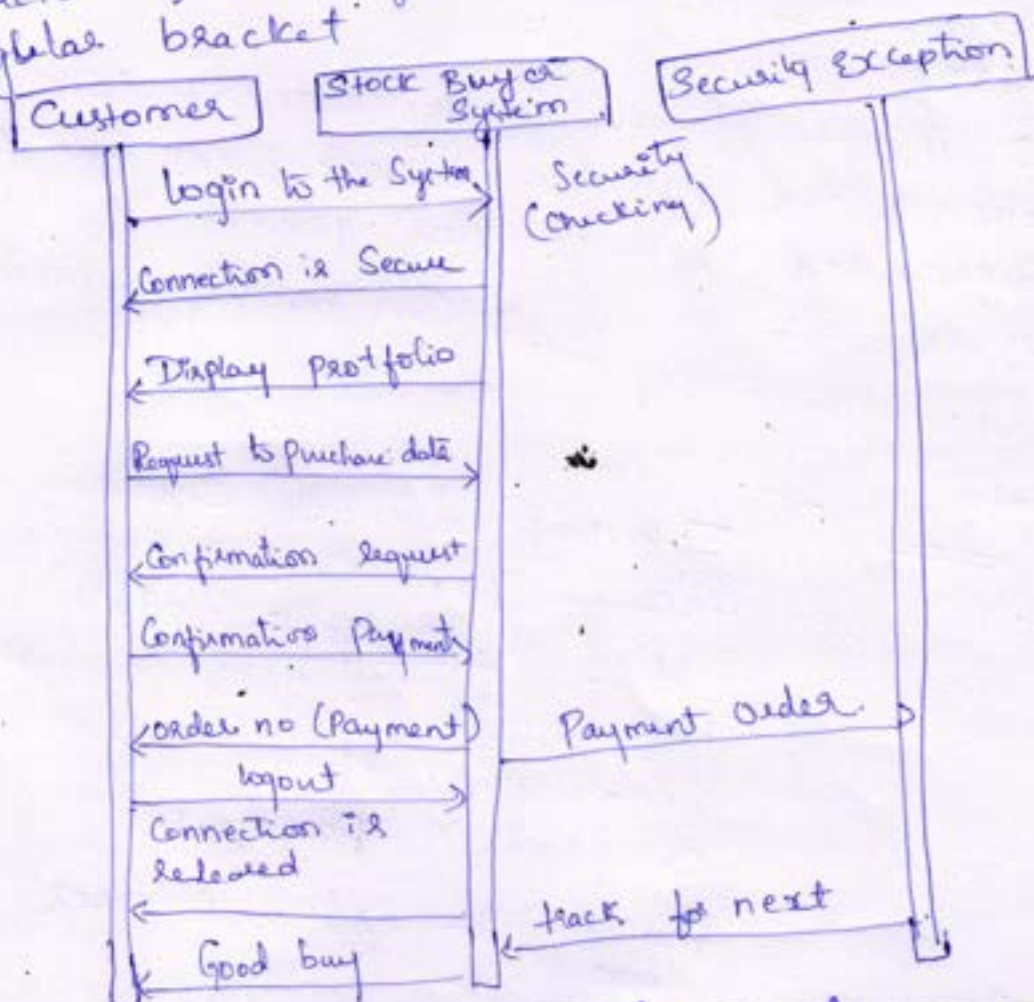 bracket
Customer
Stock Buyer
System
Security Exception
Login to the System
Security
(checking)
Connection is Secure
Display protfolio
Request to purchase data
Confirmation request
Confirmation Payment
order no (Payment)
Payment order
logout
Connection is
released
track for next
Good buy